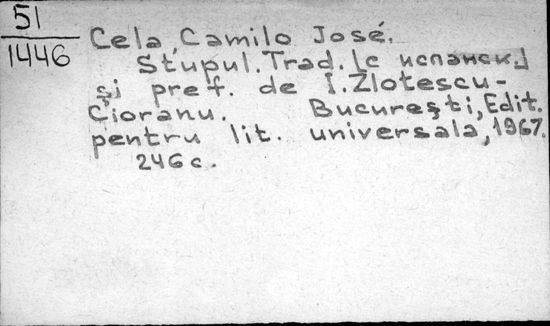 51
1446
Cela, Camilo José.
Stupul. Trad. [с испанск.]
și pref. de I. Zlotescu-
Cioranu. București, Edit.
pentru lit. universala, 1967.
246 с.